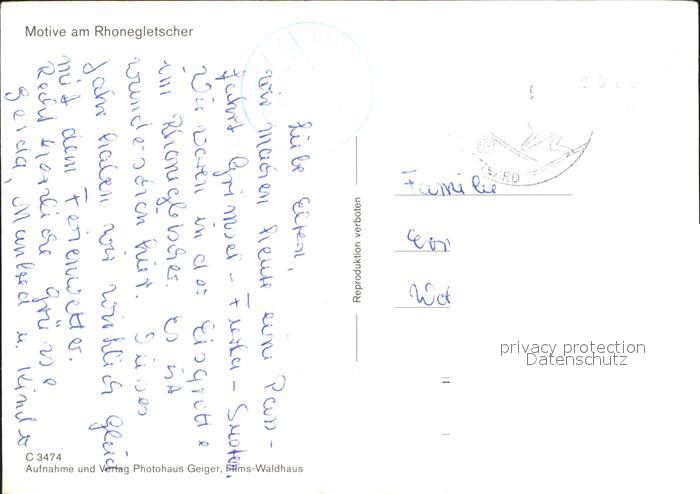 Motive am Rhonegletscher
Liebe Eltern,
wir machen heute eine Pass-
fahrt Grimsel - Furka - Susten.
Wir waren in der Eisgrotte
im Rhonegletscher. Es ist
wunderschön hier. Dieses
Jahr haben wir wirklich Glück
mit dem Ferienwetter.
Recht herzliche Grüsse
Gerda, Manfred u. Kinder
C 3474
Aufnahme und Verlag Photohaus Geiger, Flims-Waldhaus
Reproduktion verboten
Familie
privacy protection
Datenschutz